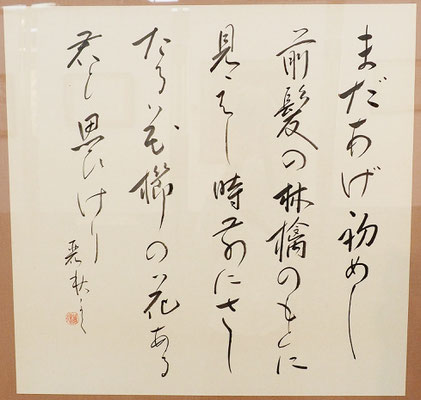 まだあげ初めし
前髪の林檎のもとに
見えし時前にさし
たる花櫛の花ある
君と思ひけり